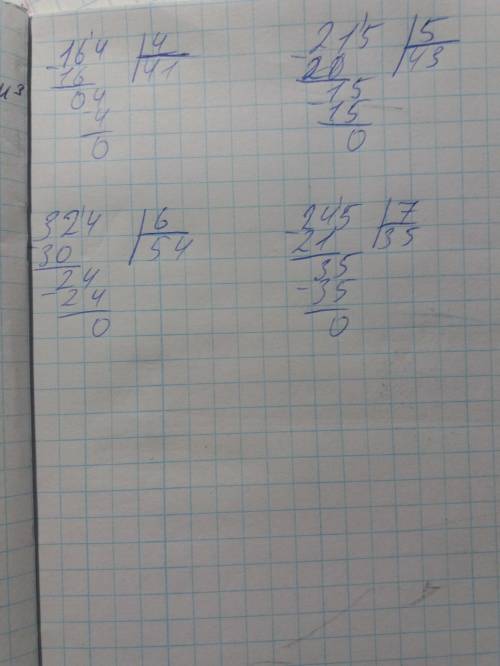 164 | 4
-16 | 41
04
-4
0
215 | 5
-20 | 43
15
-15
0
324 | 6
-30 | 54
24
-24
0
245 | 7
-21 | 35
35
-35
0